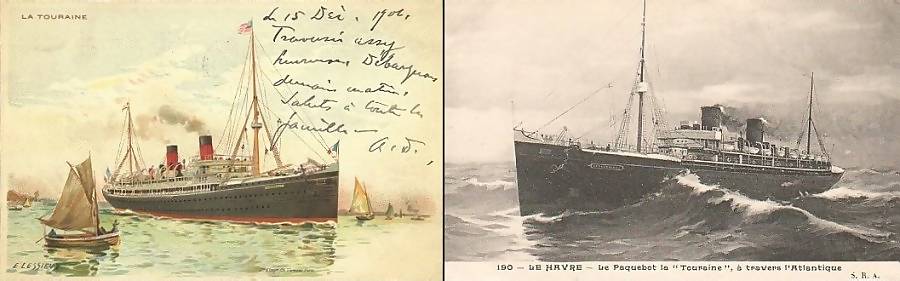 LA TOURAINE
le 15 Déc. 1901.
Traversée assez
heureuse. Débarquons
demain matin.
Saluts à toute la
famille —
A.D.
E. LESSIEUX
190 — LE HAVRE — Le Paquebot la "Touraine", à travers l'Atlantique
S. R. A.